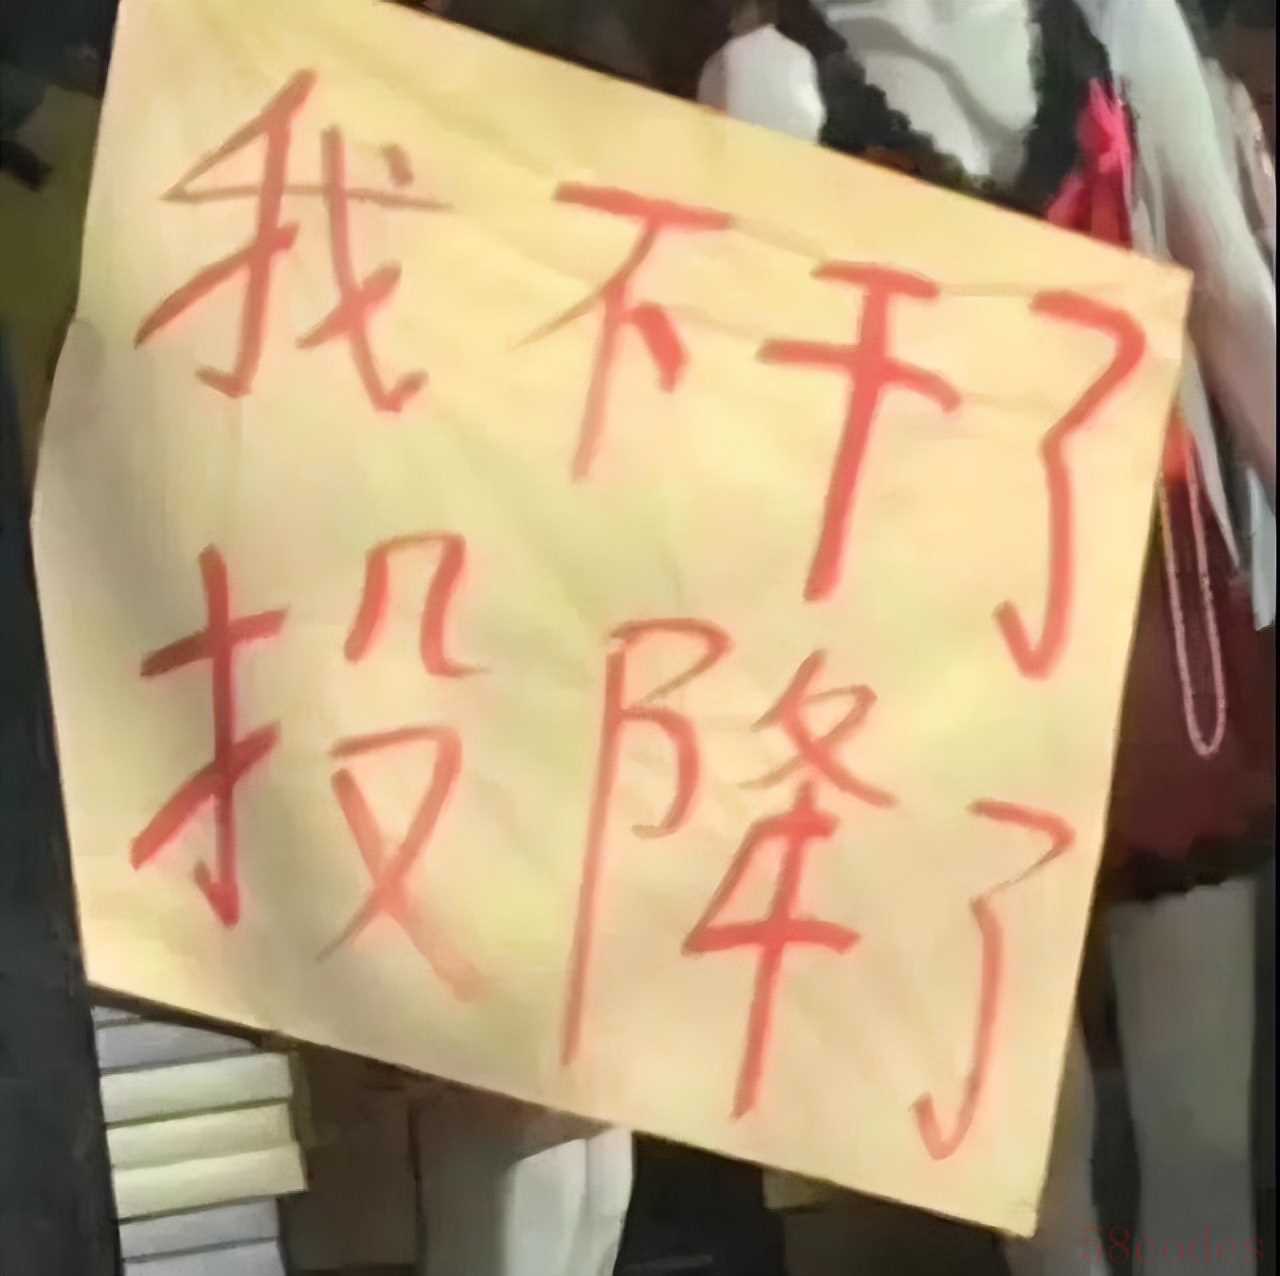 我不干了
投降了
58codes